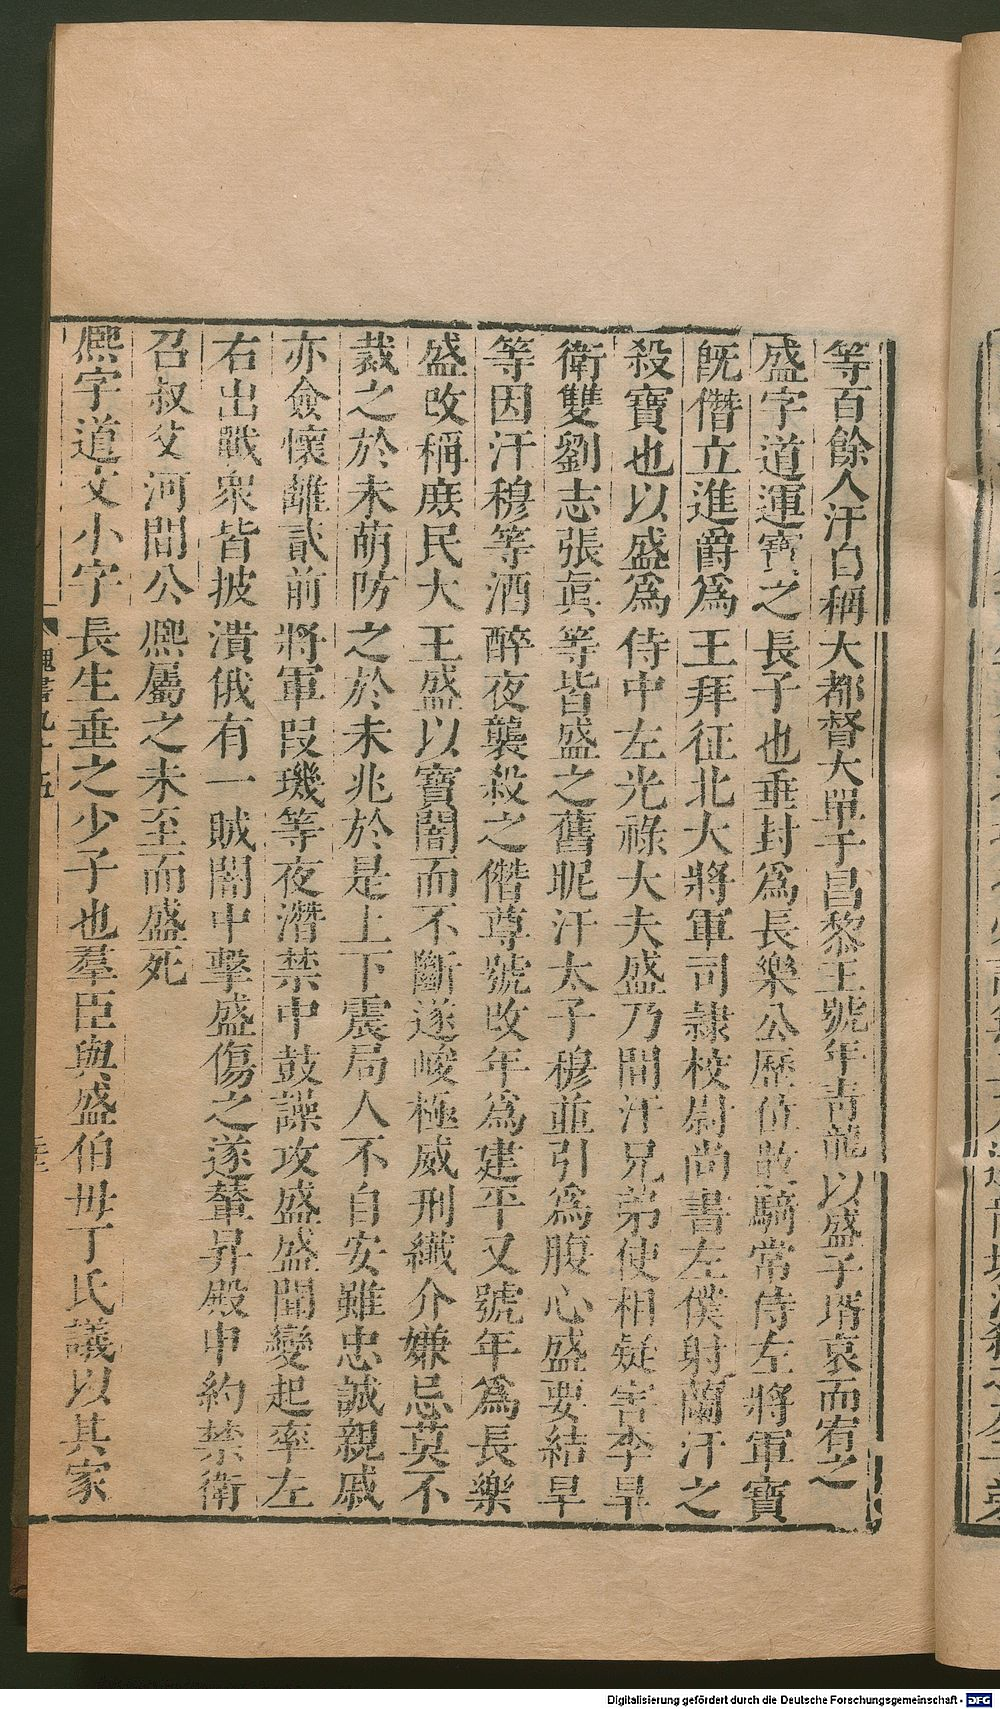 等百餘人汗自稱大都督大單于昌黎王號年青龍以盛子壻哀而宥之
盛字道運寶之長子也垂封爲長樂公歷位散騎常侍左將軍寶
旣僭立進爵爲王拜征北大將軍司隷校尉尚書左僕射蘭汗之
殺寶也以盛爲侍中左光祿大夫盛乃間汗兄弟使相疑害李旱
衛雙劉志張眞等皆盛之舊昵汗太子穆並引爲腹心盛要結旱
等因汗穆等酒醉夜襲殺之僭尊號改年爲建平又號年爲長樂
盛改稱庶民大王盛以寶闇而不斷遂峻極威刑纎介嫌忌莫不
裁之於未萌防之於未兆於是上下震局人不自安雖忠誠親戚
亦僉懷離貳前將軍叚璣等夜潛禁中鼓譟攻盛盛聞變起率左
右出戰衆皆披潰俄有一賊闇中擊盛傷之遂輦昇殿申約禁衛
召叔父河間公熙屬之未至而盛死
熙字道文小字長生垂之少子也羣臣與盛伯母丁氏議以其家
魏書九十五
Digitalisierung gefördert durch die Deutsche Forschungsgemeinschaft - DFG